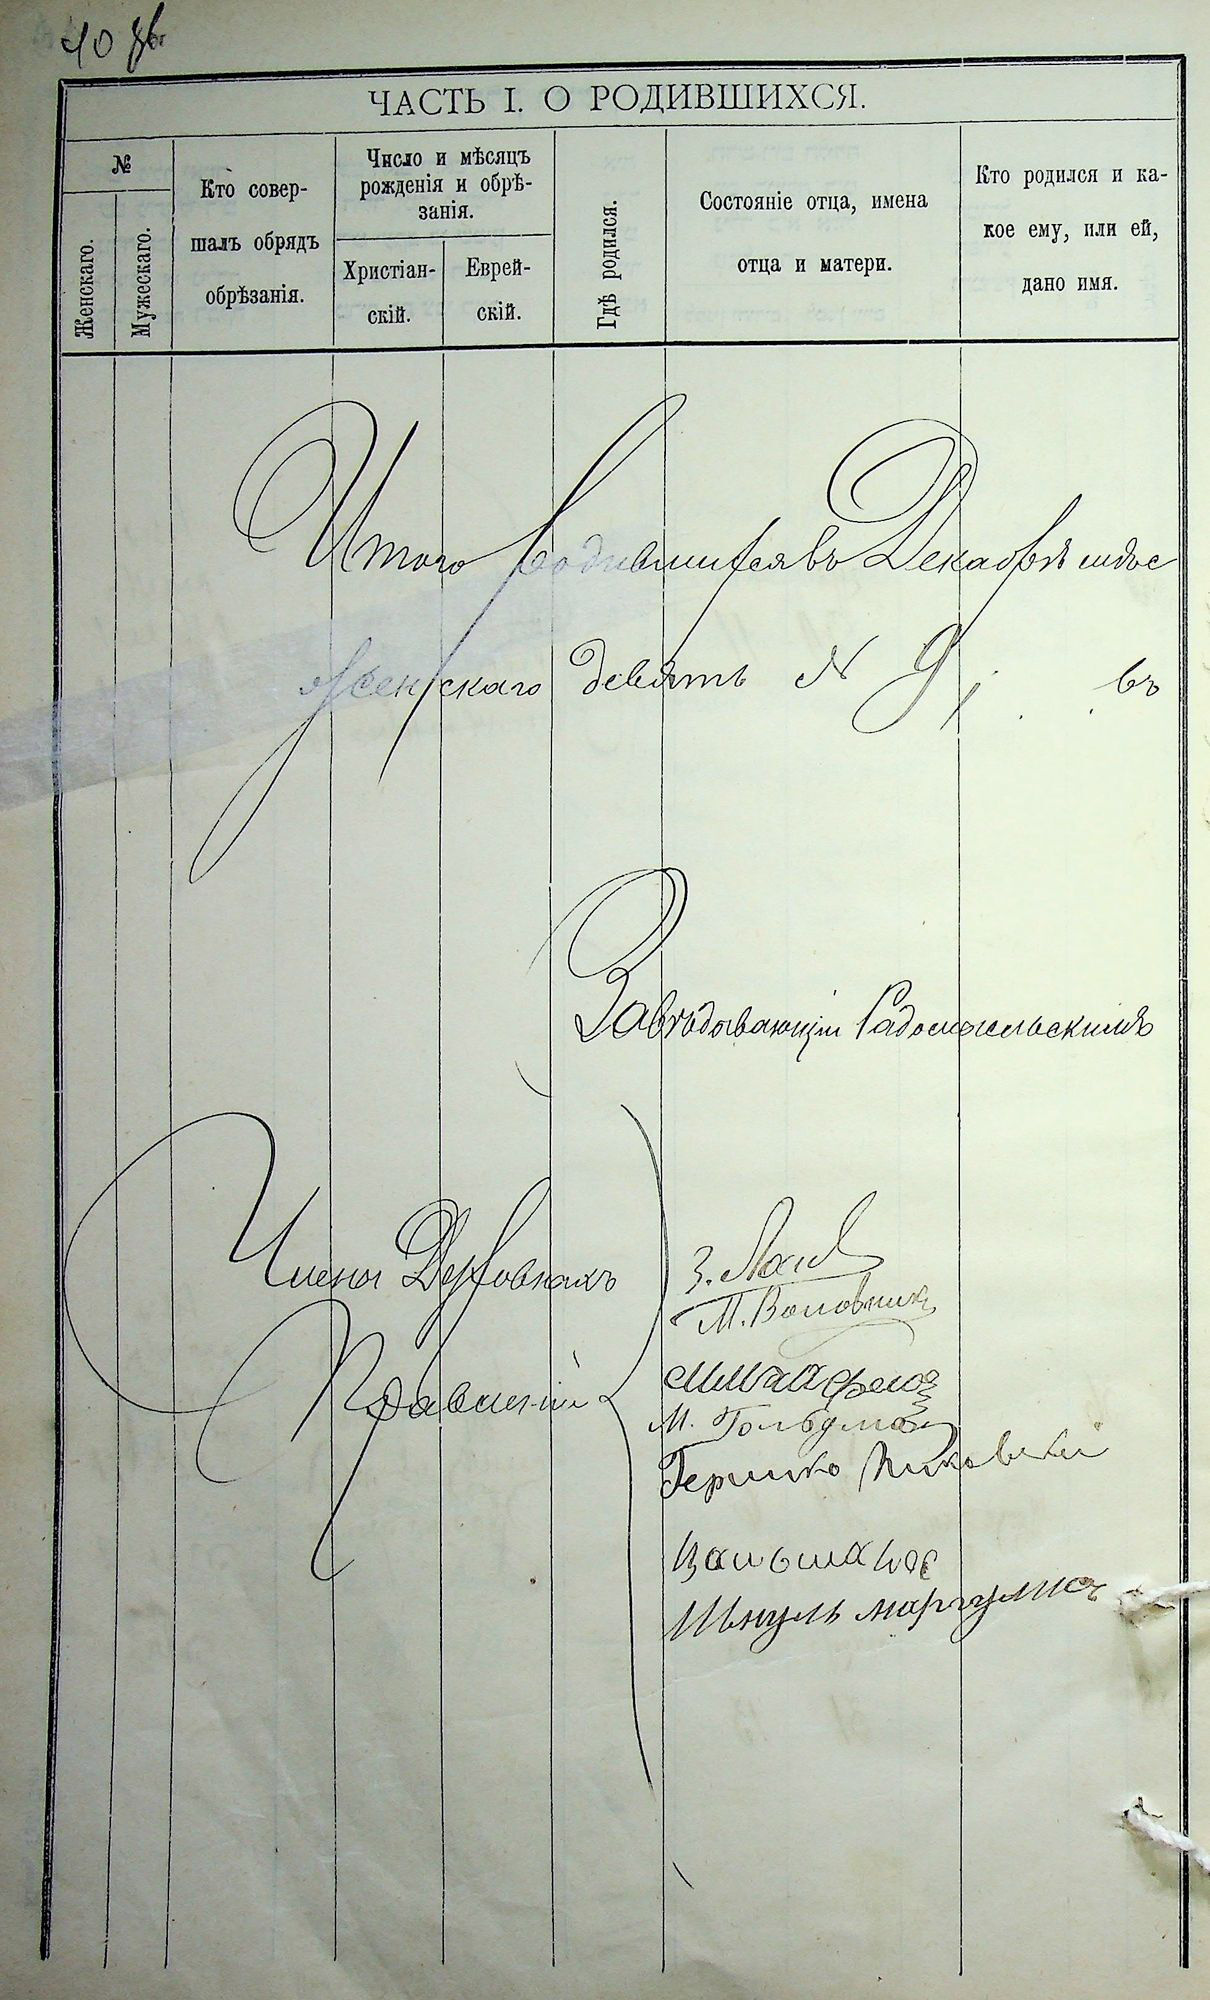 40
ЧАСТЬ I. О РОДИВШИХСЯ.
№
Женскаго.
Мужескаго.
Кто совер-
шалъ обрядъ
обрѣзанія.
Число и мѣсяцъ
рожденія и обрѣ-
занія.
Христіан-
скій.
Еврей-
скій.
Гдѣ родился.
Состояніе отца, имена
отца и матери.
Кто родился и ка-
кое ему, или ей,
дано имя.
Итого родившихся въ Декабрѣ
женскаго девять № 9, въ
Завѣдывающій Радомысльскимъ
Члены Духовныхъ
Правленій
З.
М. Воловник
М. Гольдман
Гершко
Шмуль Маргулис